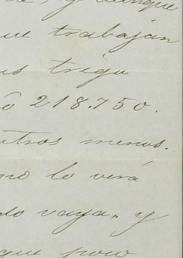 y aunque
ue trabajan
us trigu
ó 218.750.
utros menos.
no lo verá
do vaya. y
que pour